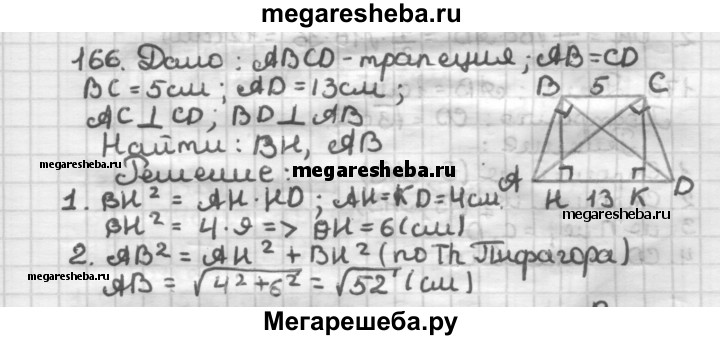 megaresheba.ru
166. Дано: ABCD - трапеция; AB = CD
BC = 5см; AD = 13см;
AC ⊥ CD; BD ⊥ AB
Найти: BH, AB
megaresheba.ru
Решение:
megaresheba.ru
1. BH² = AH · HD; AH = KD = 4см.
BH² = 4 · 9 => BH = 6(см)
2. AB² = AH² + BH² (по Th Пифагора)
megaresheba.ru
AB = √4² + 6² = √52 (см)
B 5 C
A H 13 K D
megaresheba.ru
megaresheba.ru
Мегарешеба.ру